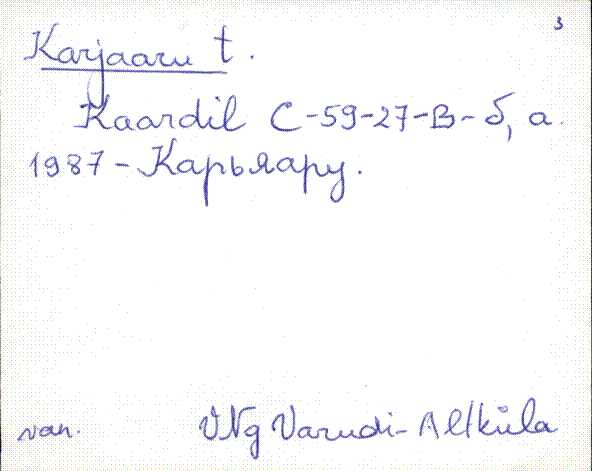 3
Karjaaru t.
Kaardil C-59-27-B-б, a.
1987 - Карьяару.
van. VNg Varudi-Altküla